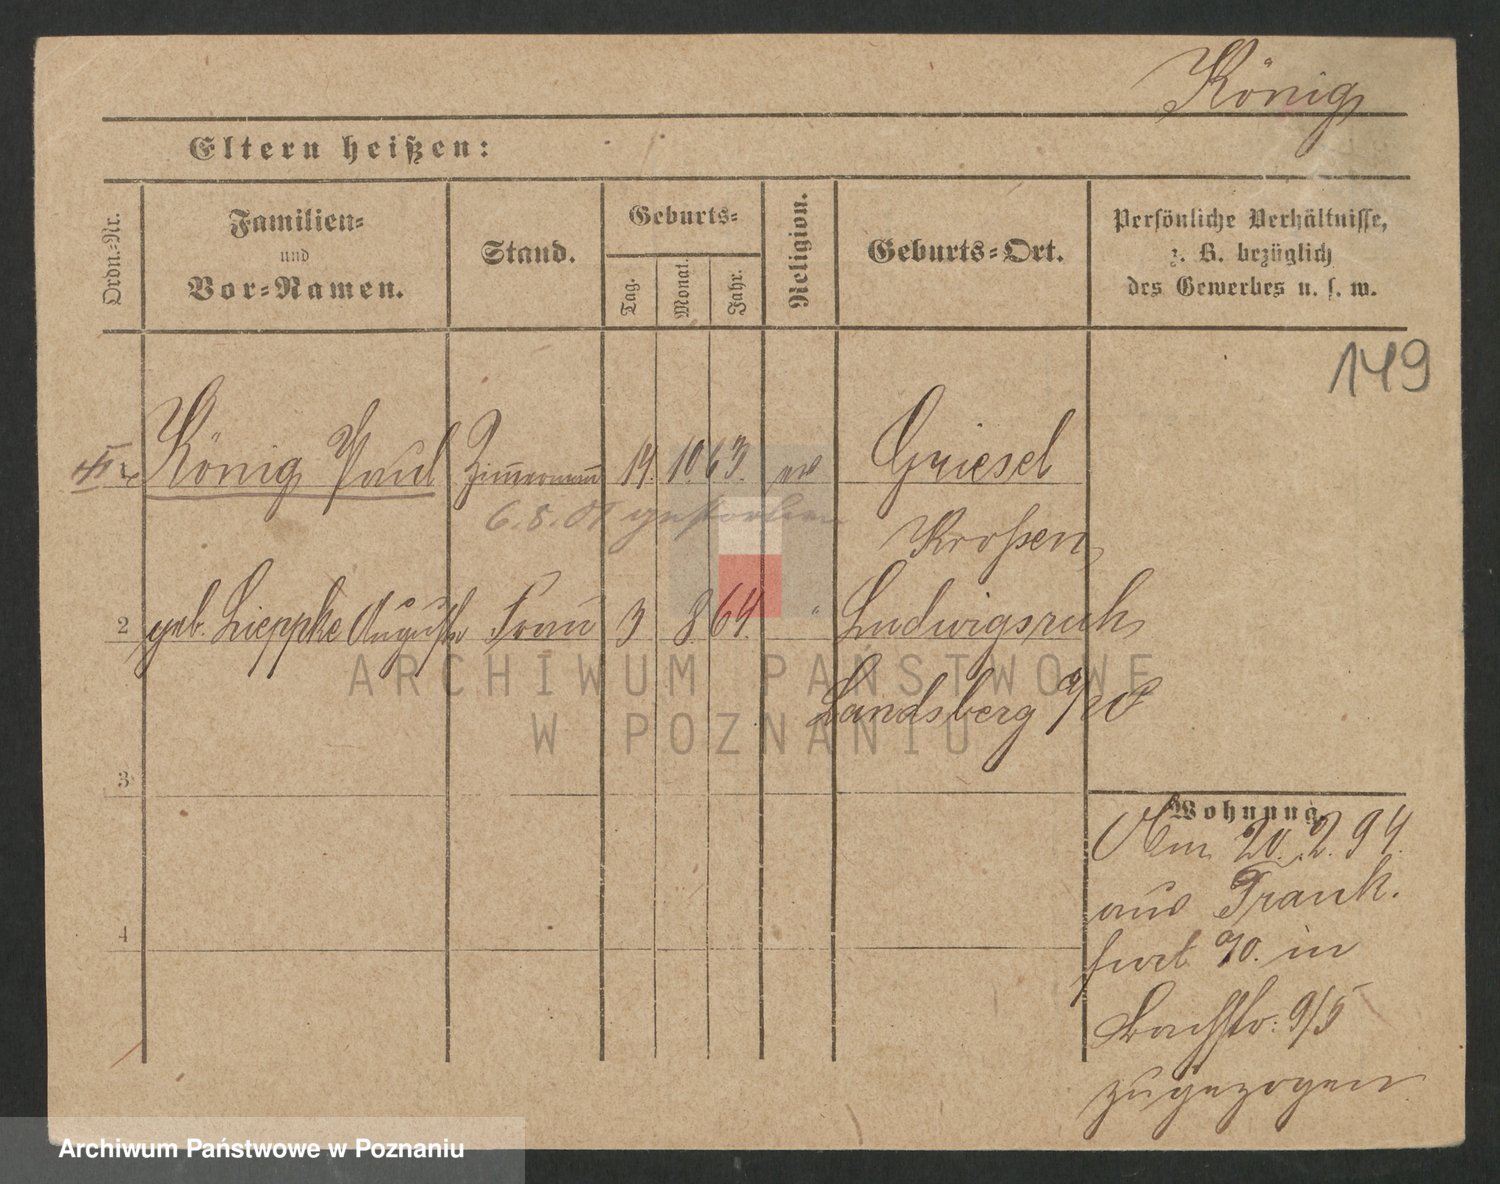 König
Eltern heißen:
Ordn.-Nr.
Familien-
und
Vor-Namen.
Stand.
Geburts-
Tag.
Monat.
Jahr.
Religion.
Geburts-Ort.
Persönliche Verhältnisse,
z. B. bezüglich
des Gewerbes u. s. w.
149
König Paul Zimmermann 14. 10 63. ev Griesel
6. 8. 01 gestorben
Kroßen
2 geb. Lieppke Auguste Frau 3 8 64. " Ludwigsruh
Landsberg a/W
3
4
Wohnung.
Am 20. 2. 94.
aus Frank.
furt a/O. in
Bachstr: 9/5
zugezogen
ARCHIWUM PAŃSTWOWE
W POZNANIU
Archiwum Państwowe w Poznaniu